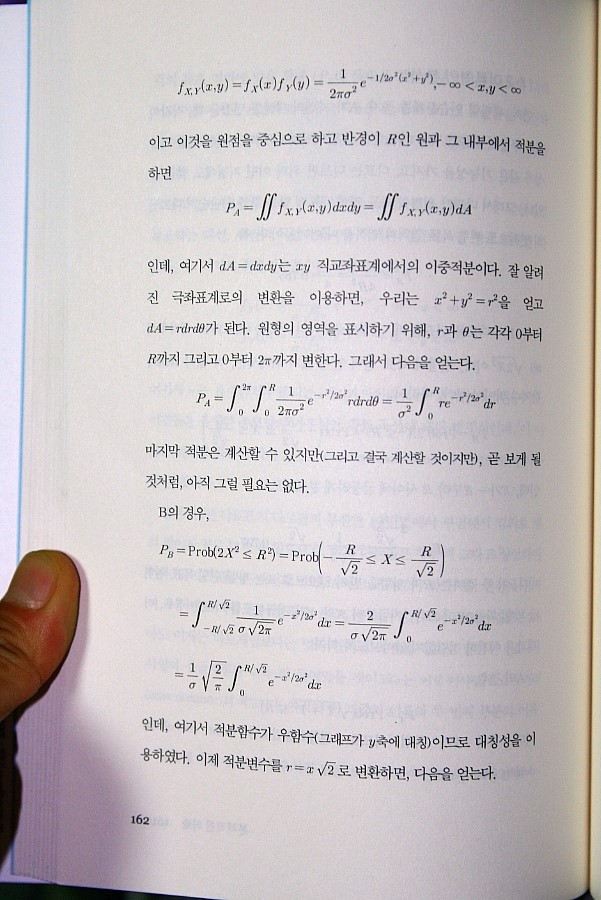 f_{X,Y}(x,y) = f_X(x) f_Y(y) = \frac{1}{2πσ^2} e^{-1/2σ^2(x^2+y^2)}, -∞ < x,y < ∞
이고 이것을 원점을 중심으로 하고 반경이 R인 원과 그 내부에서 적분을
하면
P_A = ∬ f_{X,Y}(x,y)dxdy = ∬ f_{X,Y}(x,y)dA
인데, 여기서 dA = dxdy는 xy 직교좌표계에서의 이중적분이다. 잘 알려
진 극좌표계로의 변환을 이용하면, 우리는 x^2+y^2=r^2을 얻고
dA = rdrdθ가 된다. 원형의 영역을 표시하기 위해, r과 θ는 각각 0부터
R까지 그리고 0부터 2π까지 변한다. 그래서 다음을 얻는다.
P_A = ∫_0^{2π} ∫_0^R \frac{1}{2πσ^2} e^{-r^2/2σ^2} rdrdθ = \frac{1}{σ^2} ∫_0^R re^{-r^2/2σ^2} dr
마지막 적분은 계산할 수 있지만(그리고 결국 계산할 것이지만), 곧 보게 될
것처럼, 아직 그럴 필요는 없다.
B의 경우,
P_B = Prob(2X^2 ≤ R^2) = Prob(-\frac{R}{√2} ≤ X ≤ \frac{R}{√2})
= ∫_{-R/√2}^{R/√2} \frac{1}{σ√2π} e^{-x^2/2σ^2} dx = \frac{2}{σ√2π} ∫_0^{R/√2} e^{-x^2/2σ^2} dx
= \frac{1}{σ} √\frac{2}{π} ∫_0^{R/√2} e^{-x^2/2σ^2} dx
인데, 여기서 적분함수가 우함수(그래프가 y축에 대칭)이므로 대칭성을 이
용하였다. 이제 적분변수를 r = x√2로 변환하면, 다음을 얻는다.
162